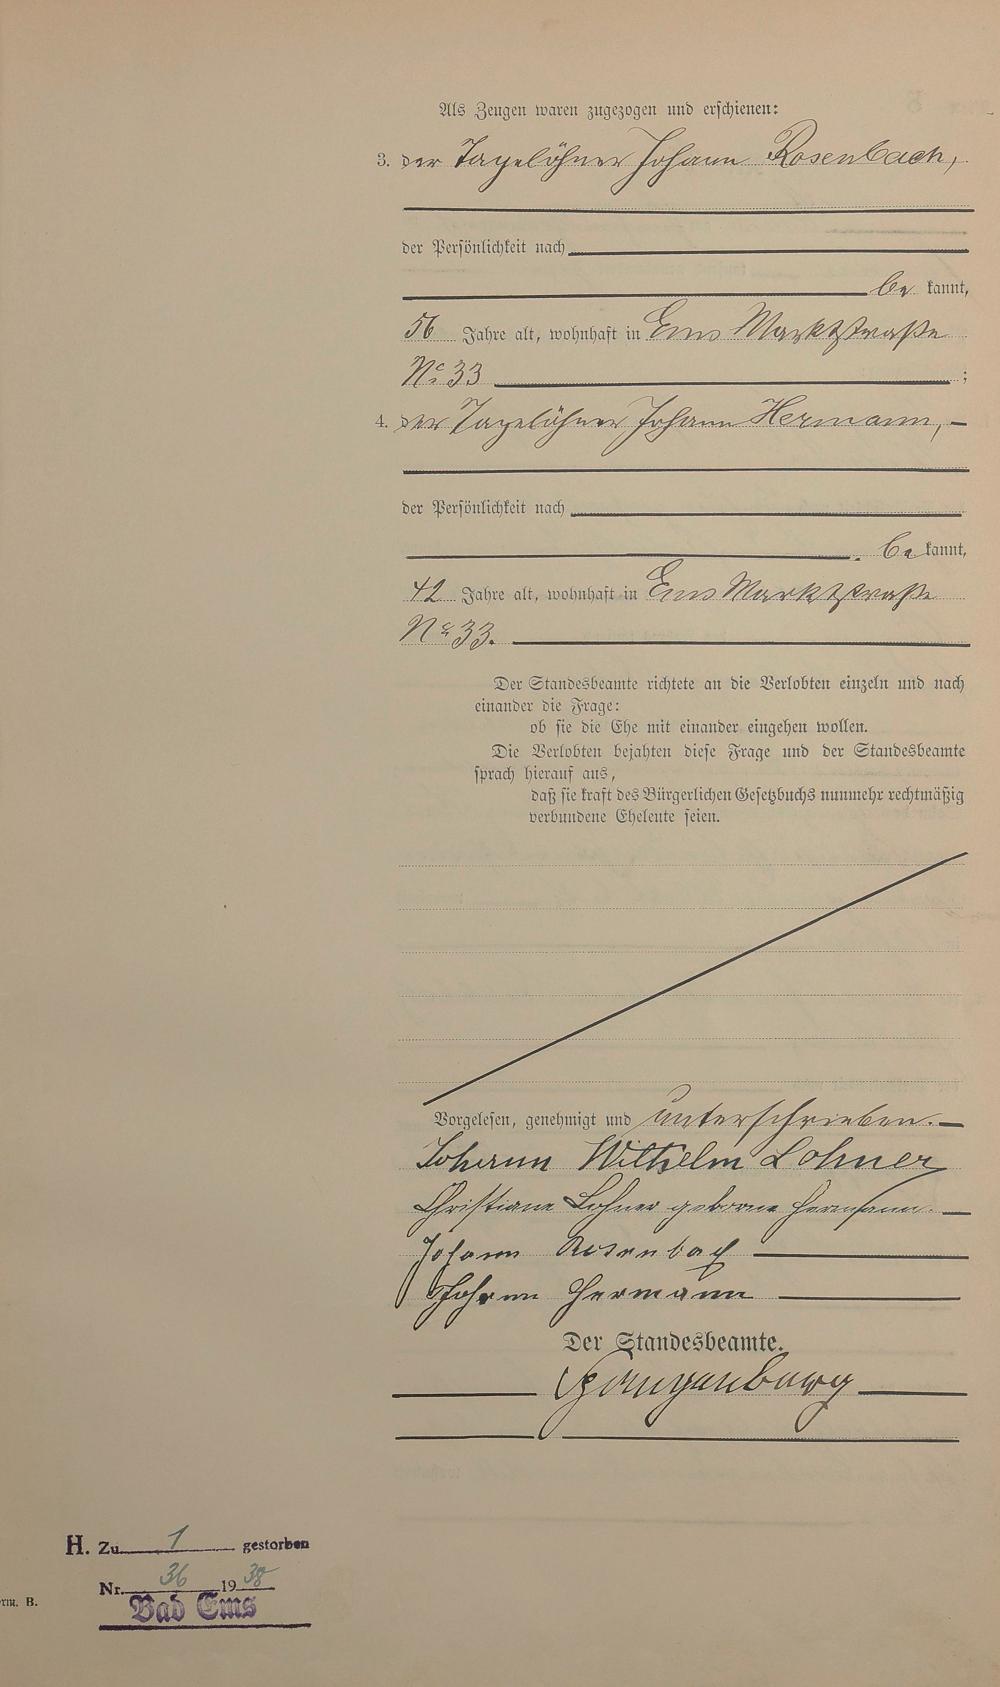 Als Zeugen waren zugezogen und erschienen:
3. der Tagelöhner Johann Rosenbach,
der Persönlichkeit nach
be kannt,
56 Jahre alt, wohnhaft in Ems Marktstraße
No 33 ;
4. der Tagelöhner Johann Hermann, —
der Persönlichkeit nach
be kannt,
42 Jahre alt, wohnhaft in Ems Marktstraße
No 33.
Der Standesbeamte richtete an die Verlobten einzeln und nach
einander die Frage:
ob sie die Ehe mit einander eingehen wollen.
Die Verlobten bejahten diese Frage und der Standesbeamte
sprach hierauf aus,
daß sie kraft des Bürgerlichen Gesetzbuchs nunmehr rechtmäßig
verbundene Eheleute seien.
Vorgelesen, genehmigt und unterschrieben. —
Johann Wilhelm Lohner
Christiane Lohner geborne Hermann. —
Johann Rosenbach
Johann Hermann
Der Standesbeamte.
H. Zu 1 gestorben
Nr. 36 19 38
Bad Ems
rm. B.